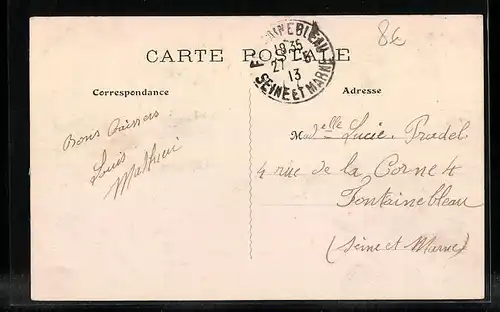 8€
CARTE POSTALE
FONTAINEBLEAU
18 35
27 - 5
13
SEINE ET MARNE
Correspondance
Adresse
Bons Baisers
Louis
Mathieu
Melle Lucie Pradel
4 rue de la Corne 4
Fontainebleau
(Seine et Marne)